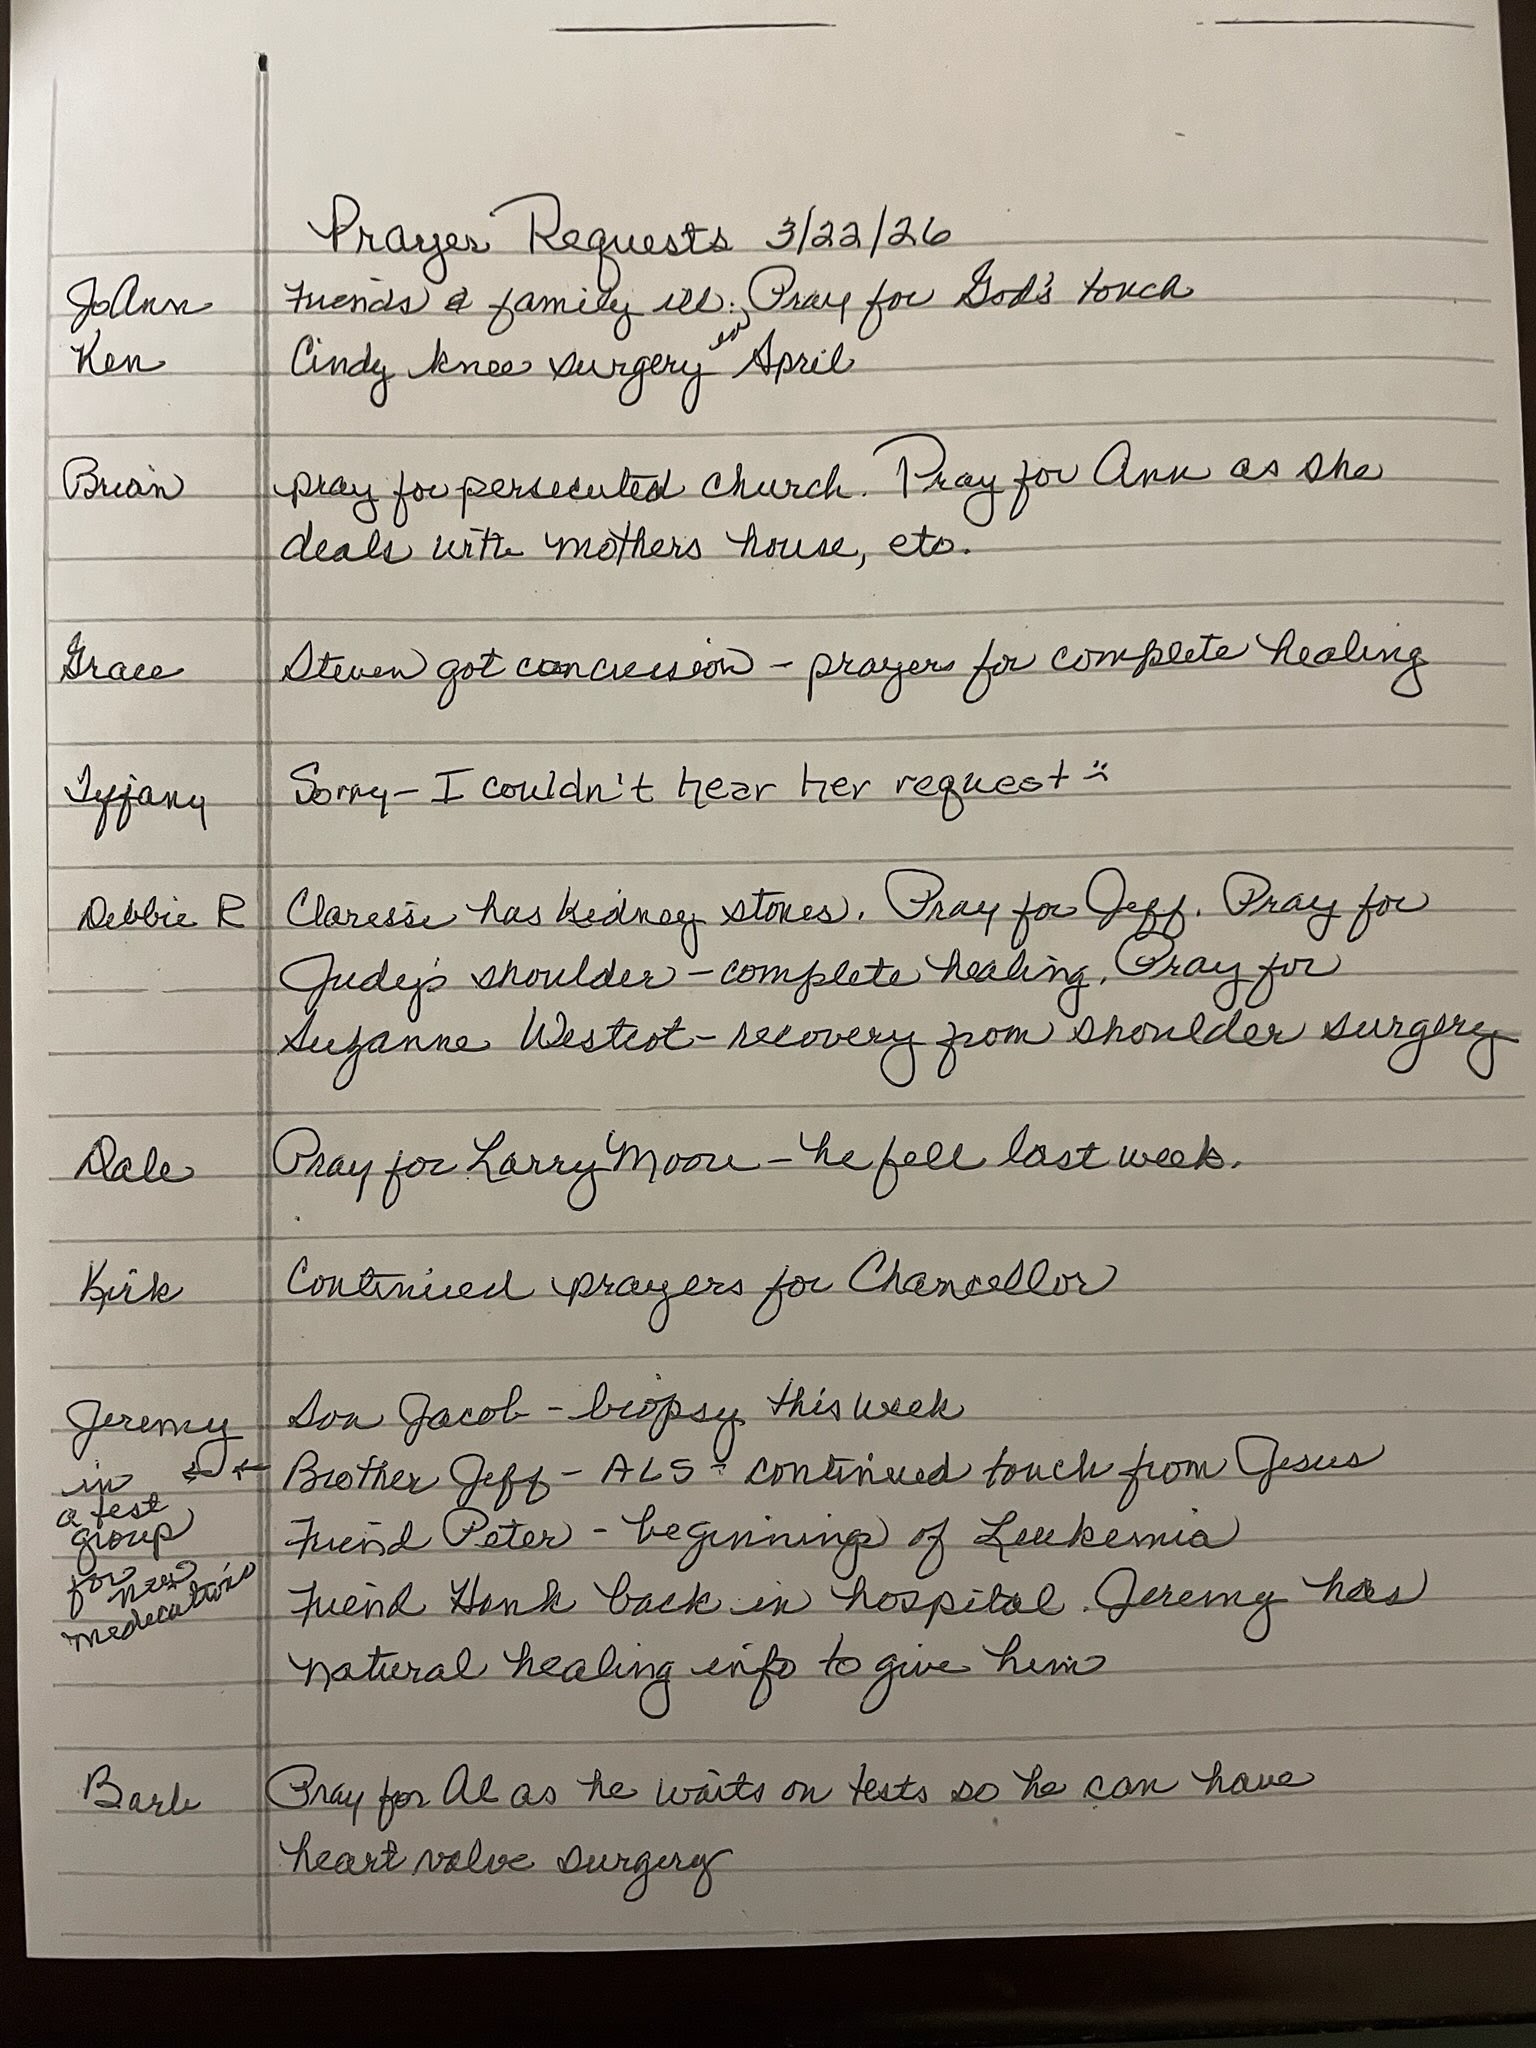 Prayer Requests 3/22/26
JoAnn Friends & family ill. Pray for God's touch
Ken Cindy knee surgery in April
Brian pray for persecuted church. Pray for Ann as she
deals with mothers house, etc.
Grace Steven got concussion - prayers for complete healing
Tyfany Sorry - I couldn't hear her request :(
Debbie R Claresse has kidney stones. Pray for Jeff. Pray for
Judy's shoulder - complete healing. Pray for
Suzanne Westcot - recovery from shoulder surgery
Dale Pray for Larry Moore - he fell last week.
Kirk Continued prayers for Chancellor
Jeremy Son Jacob - biopsy this week
← ← Brother Jeff - ALS - continued touch from Jesus
in
a test
group
for new
medications
Friend Peter - beginning of Leukemia
Friend Hank back in hospital. Jeremy has
natural healing info to give him
Barb Pray for Al as he waits on tests so he can have
heart valve surgery